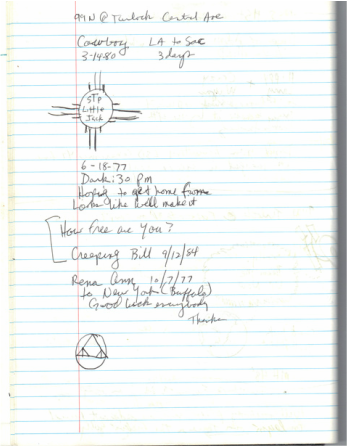 99 N @ Turlock Central Ave
Cowboy LA to Sac
3-14-80 3 days
STP
Little
Jack
6-18-77
Dark:30 pm
Hoping to get home from
Looks like I will make it
How free are you?
Creeping Bill 9/12/84
Rena Ann 10/7/77
to New York (Buffalo)
Good luck everybody